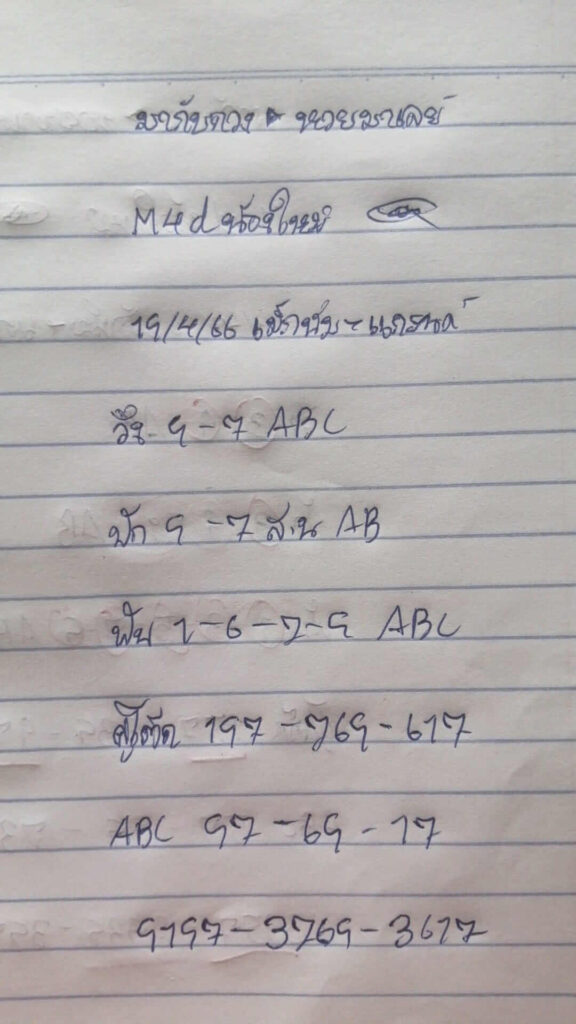 มากับดวง ▸ หวยมาเลย์
M4d น้องใหม่
19/4/66 แม็กนั่ม - แกรนด์
วิ่ง 9-7 ABC
ปัก 9-7 ส.น AB
ฟัน 1-6-7-9 ABC
197-769-617
ABC 97-69-17
9197-3769-3617